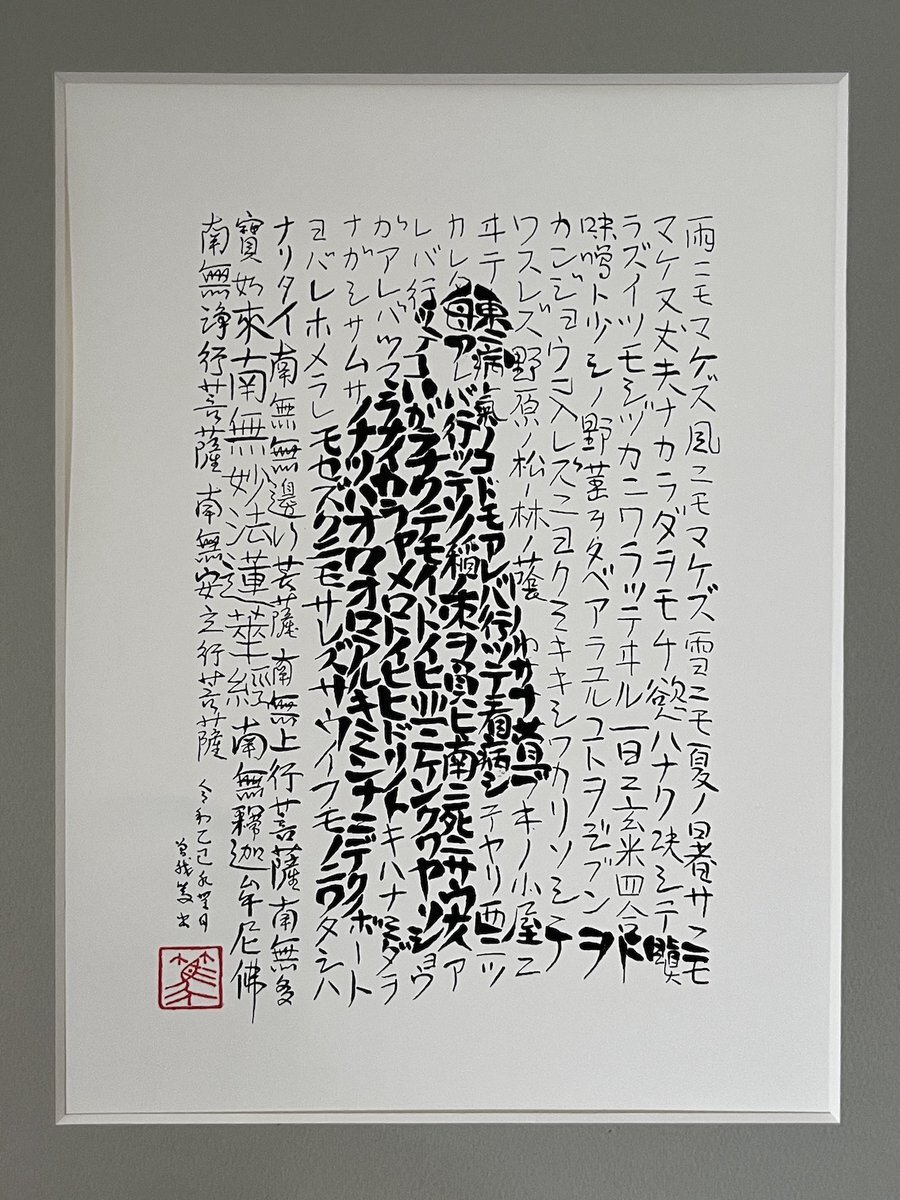 雨ニモマケズ風ニモマケズ雪ニモ夏ノ暑サニモ
マケヌ丈夫ナカラダヲモチ慾ハナク決シテ瞋
ラズイツモシヅカニワラッテヰル一日ニ玄米四合ト
味噌ト少シノ野菜ヲタベアラユルコトヲジブンヲ
カンジョウニ入レズニヨクミキキシワカリソシテ
ワスレズ野原ノ松ノ林ノ蔭ノ小サナ萱ブキノ小屋ニ
ヰテ東ニ病氣ノコドモアレバ行ッテ看病シテヤリ西ニツ
カレタ母アレバ行ッテソノ稲ノ束ヲ負ヒ南ニ死ニサウナ人ア
レバ行ッテコハガラナクテモイヽトイヒ北ニケンクヮヤソショウ
ガアレバツマラナイカラヤメロトイヒヒドリノトキハナミダヲ
ナガシサムサノナツハオロオロアルキミンナニデクノボート
ヨバレホメラレモセズクニモサレズサウイフモノニワタシハ
ナリタイ南無無邊行菩薩南無上行菩薩南無多
寶如來南無妙法蓮華経南無釋迦牟尼佛
南無浄行菩薩 南無安立行菩薩 令和乙巳